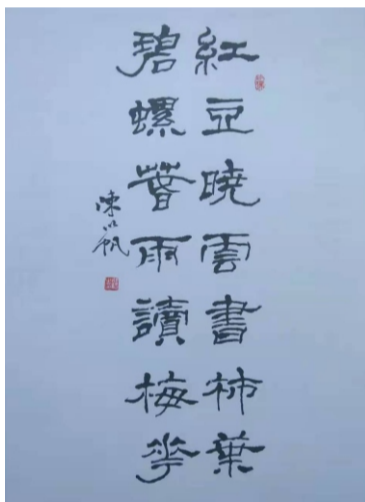 紅豆曉雲書柿葉
碧螺春雨讀梅花
陳以帆